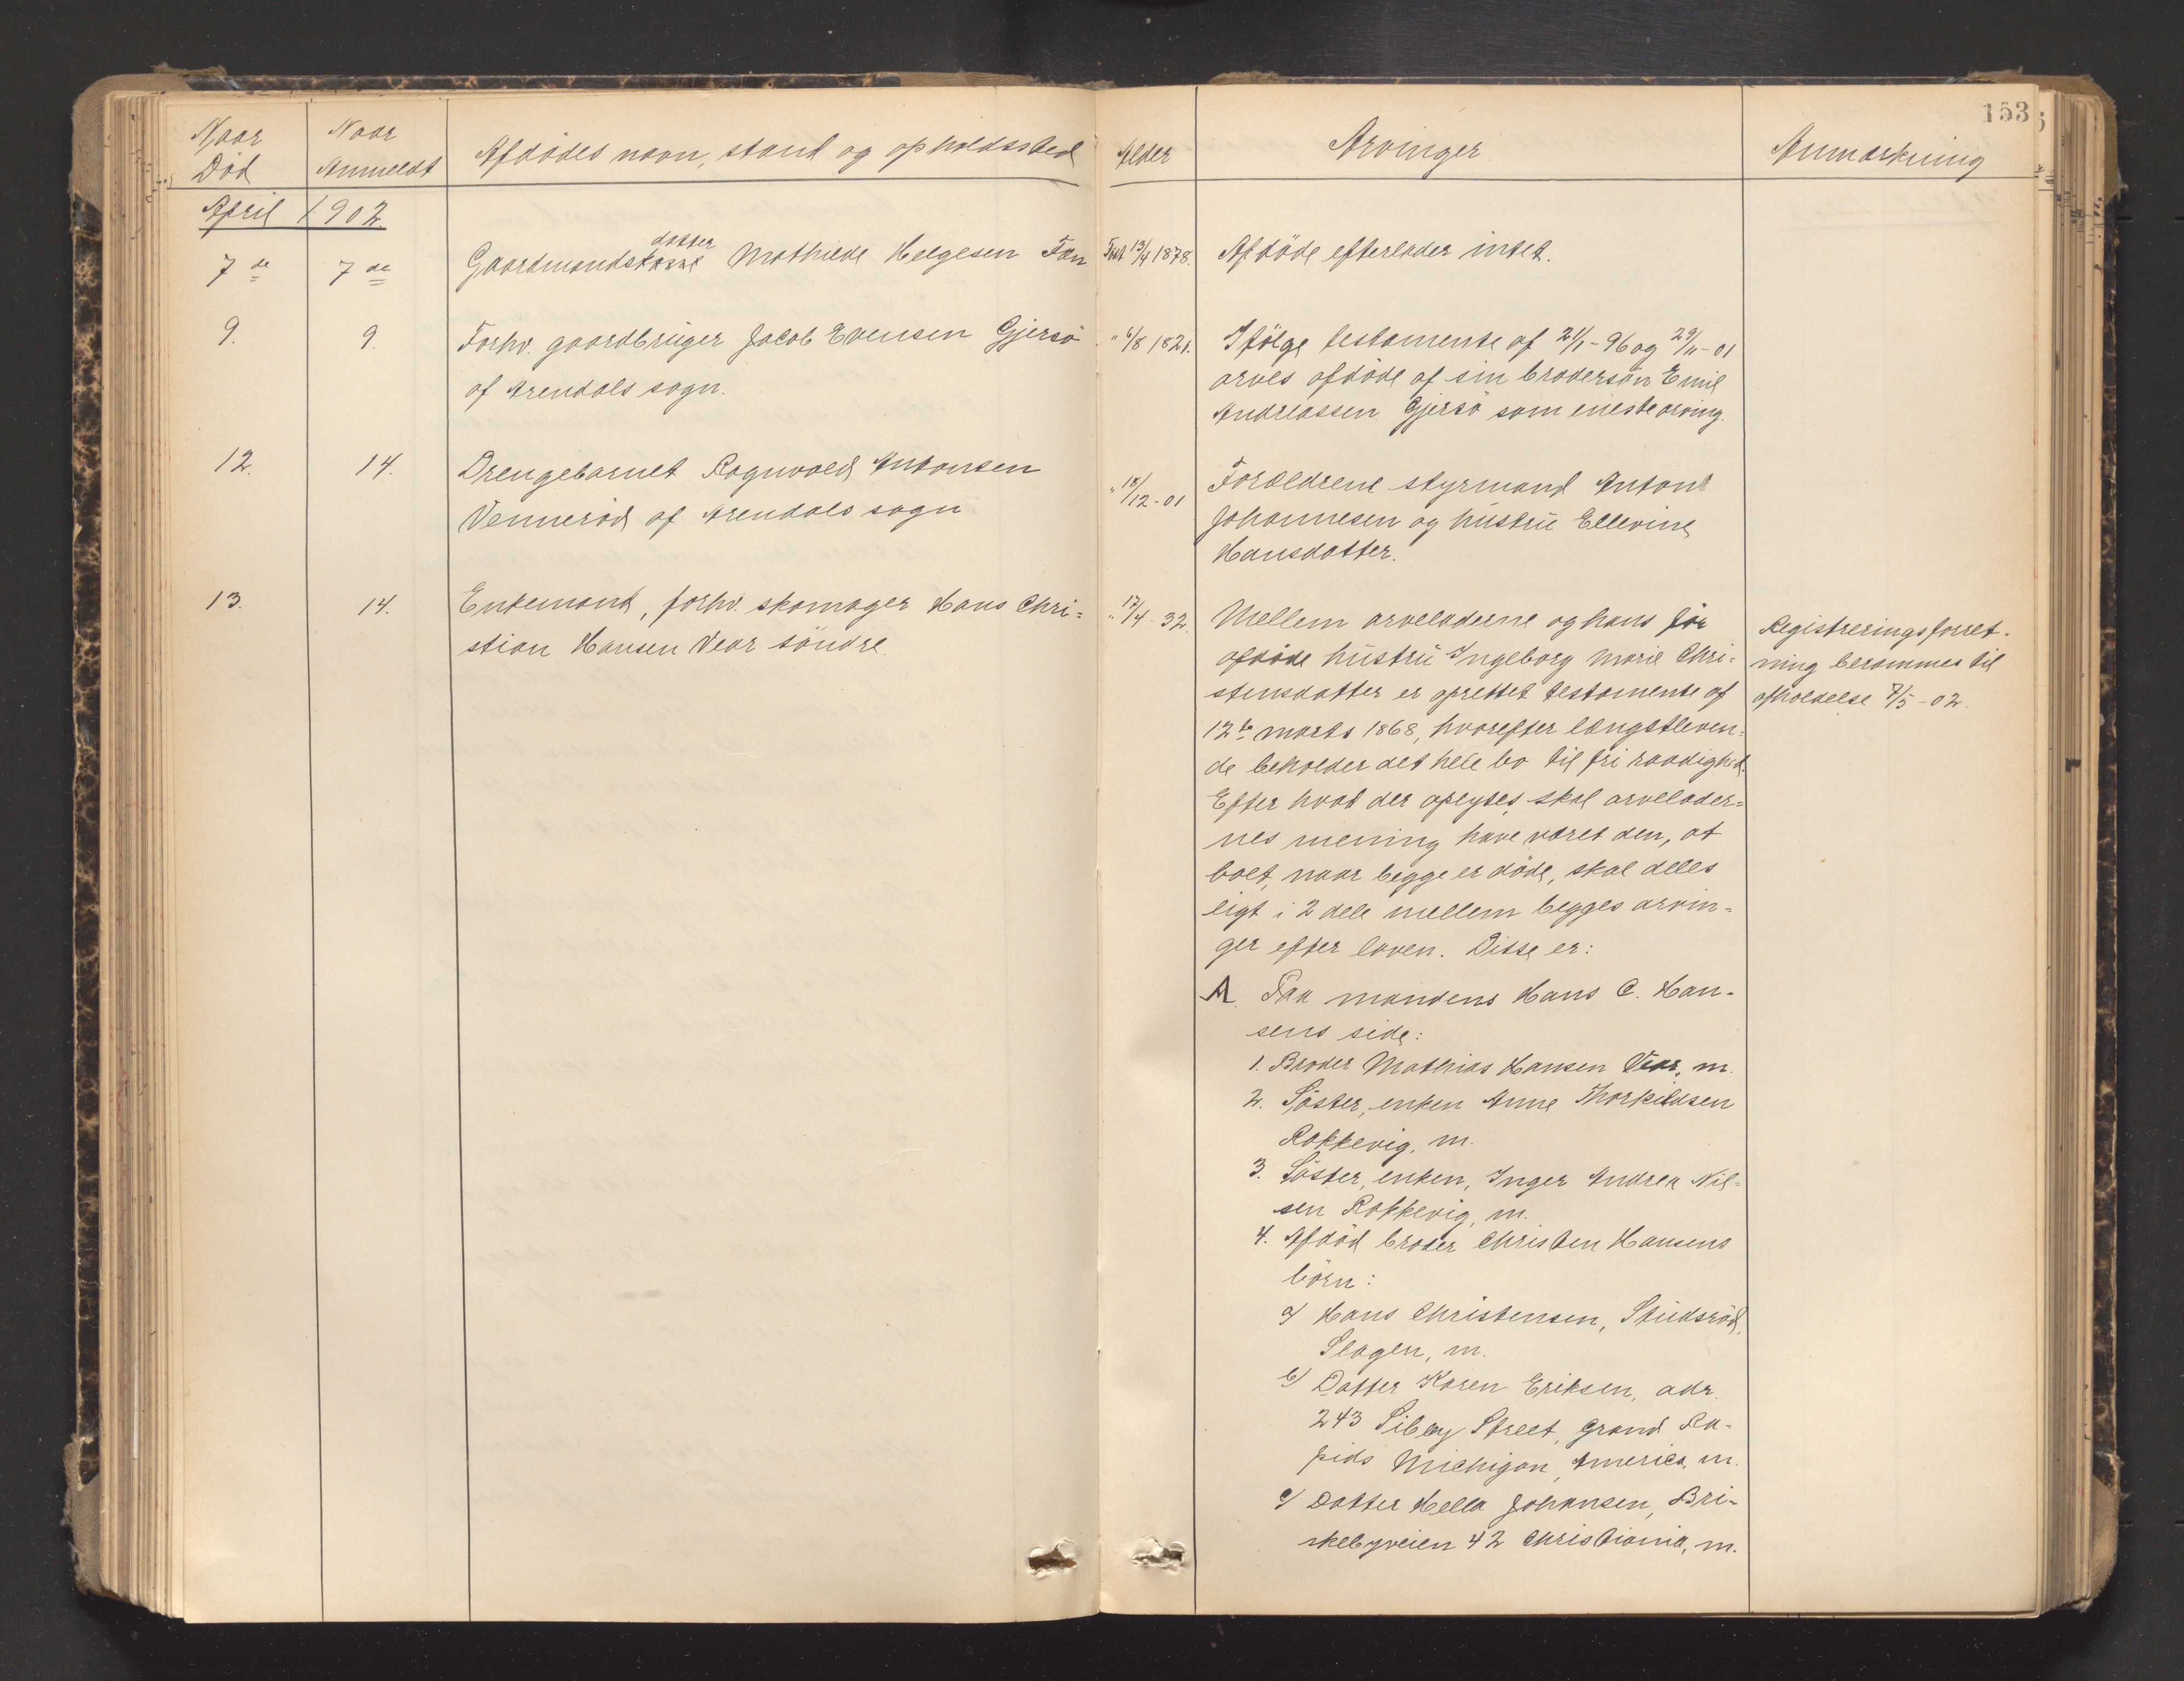 153
Naar Død
Naar Anmeldt
Afdödes navn, stand og opholdssted
Alder
Arvinger
Anmærkning
April 1902
7de
7de
Gaardmandsdatter Mathilde Helgesen Fæn
Født 13/4 1878.
Afdöde efterlader intet.
9.
9.
Forhv. gaardbruger Jacob Evensen Gjersö
af Arendals sogn.
" 6/8 1821.
Ifölge testamente af 21/1-96 og 29/11-01
arves afdöde af sin brodersön Emil
Andreassen Gjersö som eneste arving.
12.
14.
Drengebarnet Ragnvald Antonsen
Venneröd af Arendals sogn
" 18/12-01
Forældrene styrmand Anton
Johannesen og hustru Ellevine
Hansdatter.
13.
14.
Enkemand, forhv. skomager Hans Chri=
stian Hansen Vear söndre.
" 17/4-32.
Mellem arveladerne og hans för
afdöde hustru Ingeborg Marie Chri=
stensdatter er oprettet testamente af
12te marts 1868, hvorefter længstleven=
de beholder det hele bo til fri raadighed.
Efter hvad der oplyses, skal arvelader=
nes mening have været den, at
boet, naar begge er döde, skal deles
ligt i 2 dele mellem begges arvin=
ger efter loven. Disse er:
A. Paa mandens Hans C. Han=
sens side:
1. Broder Mathias Hansen Vear, m.
2. Söster, enken Anne Thorkildsen
Rakkevig, m.
3. Söster, enken, Inger Andrea Nil=
sen Rakkevig, m.
4. Afdöd broder Christen Hansens
börn:
a/ Hans Christensen, Studsröd,
Slagen, m.
b/ Datter Karen Eriksen, adr.
243 Sibley Street, Grand Ra=
pids Michigan, America, m.
c/ Datter Hella Johansen, Bri=
skebyveien 42 Christiania, m.
Registreringsforret=
ning berammes til
afholdelse 7/5-02.